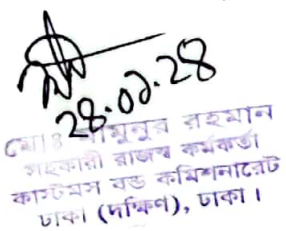 ২৪.০১.২৪
মোঃ মামুনুর রহমান
সহকারী রাজস্ব কর্মকর্তা
কাস্টমস বন্ড কমিশনারেট
ঢাকা (দক্ষিণ), ঢাকা।